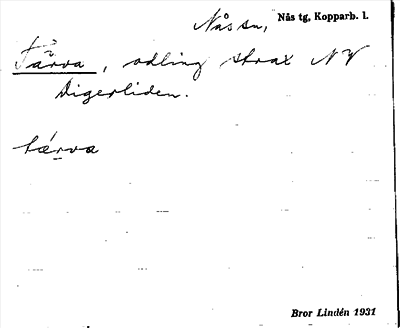 Nås sn, Nås tg, Kopparb. l.
Tårva, odling strax NV
Digerliden.
tárva
Bror Lindén 1931